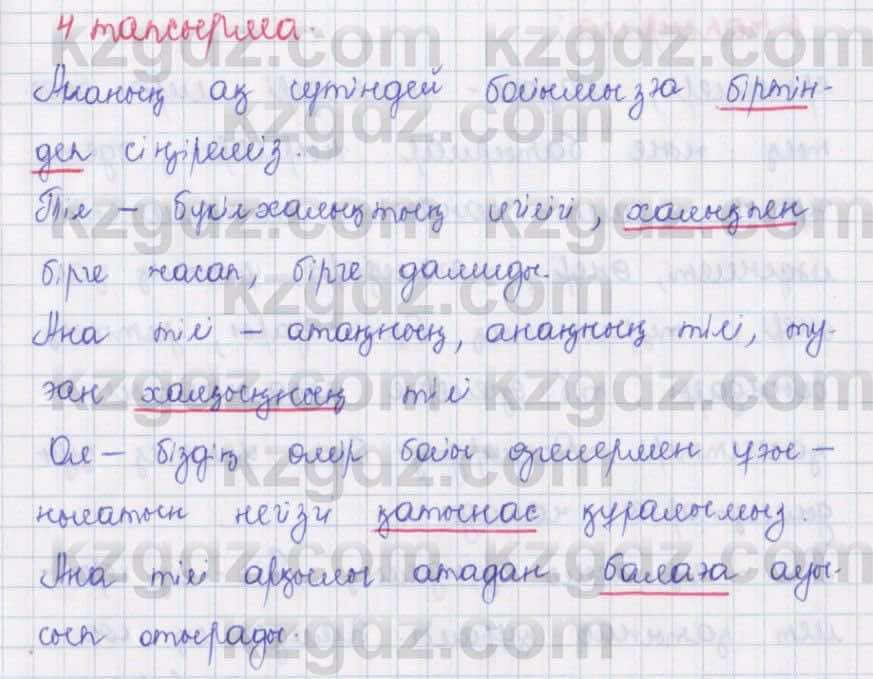 4 тапсырма.
Ананың ақ сүтіндей бойымызға біртін-
деп сіңіреміз.
Тіл – бүкілхалықтың игілігі, халықпен
бірге жасап, бірге дамиды.
Ана тілі – атаңның, анаңның тілі, ту-
ған халқыңның тілі
Ол – біздің өмір бойы өзгелермен ұғы –
нысатын негізгі қатынас құралымыз.
Ана тілі арқылы атадан балаға ауы-
сып отырады.
kzgdz.com